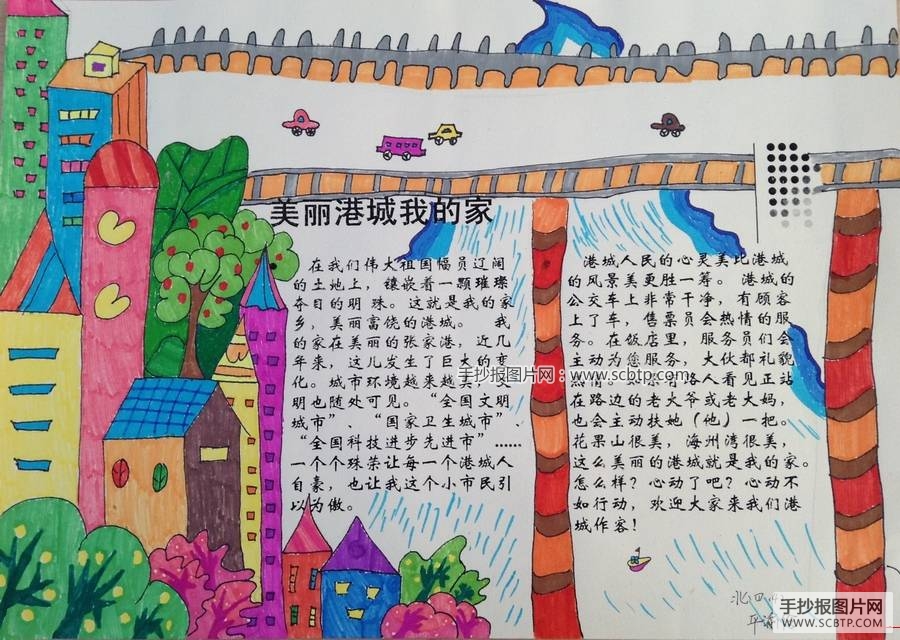 美丽港城我的家
在我们伟大祖国幅员辽阔
的土地上，镶嵌着一颗璀璨
夺目的明珠。这就是我的家
乡，美丽富饶的港城。 我
的家在美丽的张家港，近几
年来，这儿发生了巨大的变
化。城市环境越来越美，文
明也随处可见。“全国文明
城市”、“国家卫生城市”、
“全国科技进步先进市”……
一个个殊荣让每一个港城人
自豪，也让我这个小市民引
以为傲。
港城人民的心灵美比港城
的风景美更胜一筹。 港城的
公交车上非常干净，有顾客
上了车，售票员会热情的服
务。在饭店里，服务员们会
主动为您服务，大伙都礼貌
热情。
路人看见正站
在路边的老大爷或老大妈，
也会主动扶她（他）一把。
花果山很美，海州湾很美，
这么美丽的港城就是我的家。
怎么样？心动了吧？心动不
如行动，欢迎大家来我们港
城作客！
手抄报图片网：www.scbtp.com
手抄报图片网
WWW.SCBTP.COM